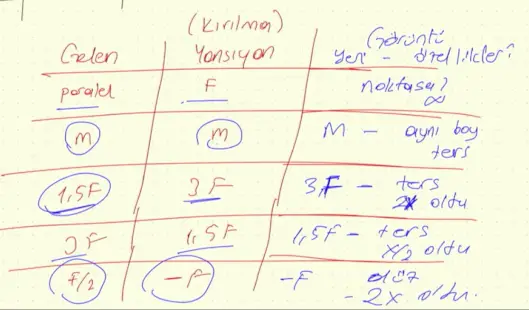 (Kırılma)
Gelen Yansıyan Görüntü
yeri - özellikleri
paralel F noktasal
∞
M M M - aynı boy
ters
1,5F 3F 3F - ters
2x oldu
3F 1,5F 1,5F - ters
x/2 oldu
F/2 -F -F düz
- 2x oldu.